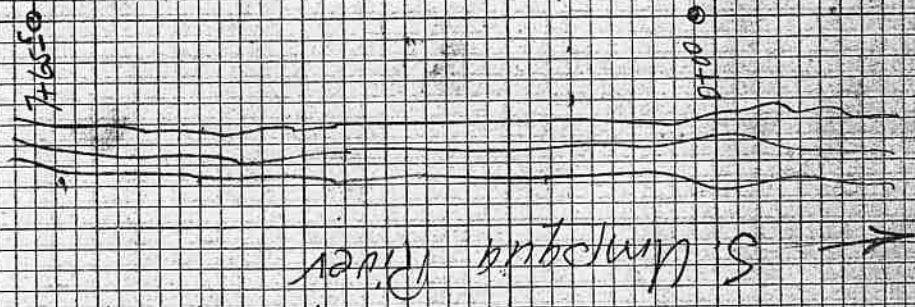 0+00
S. Umpqua River